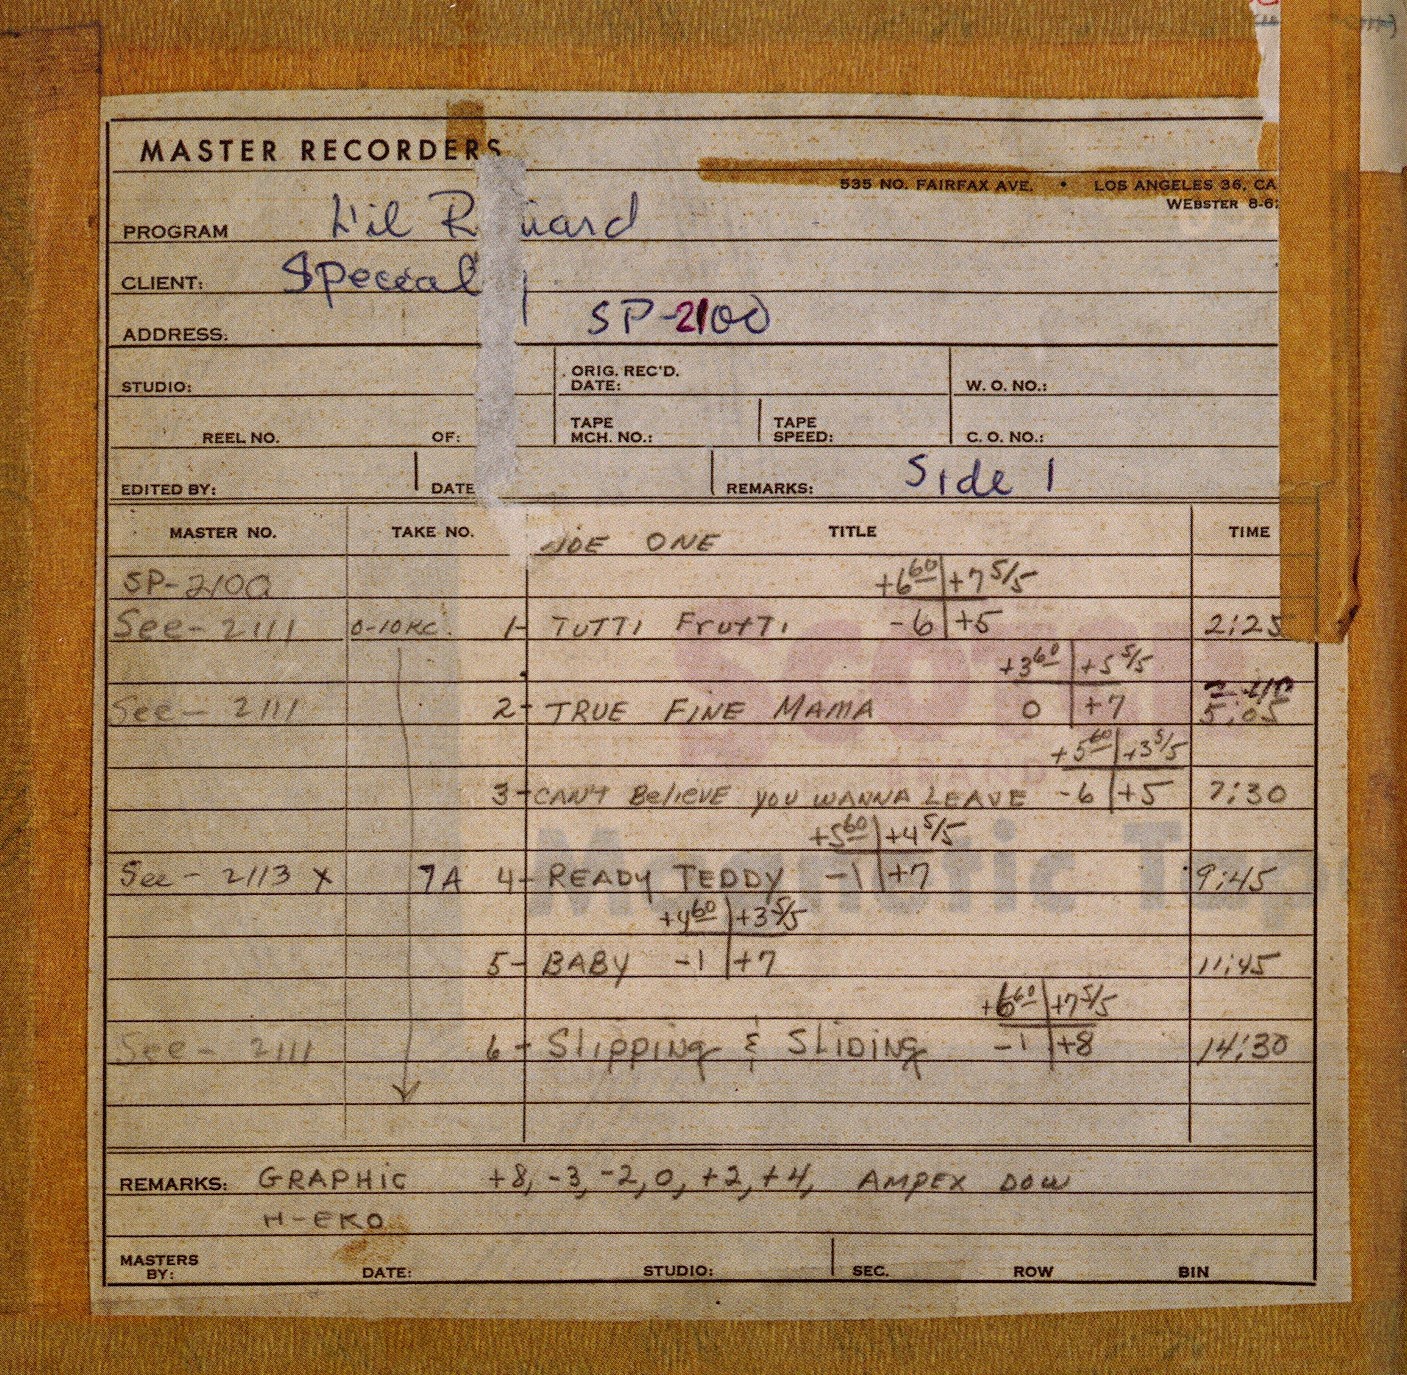 MASTER RECORDERS
535 NO. FAIRFAX AVE. • LOS ANGELES 36, CA
WEBSTER 8-6
PROGRAM L'il R uard
CLIENT: Special
ADDRESS: SP-2100
STUDIO: ORIG. REC'D. DATE: W. O. NO.:
REEL NO. OF: TAPE MCH. NO.: TAPE SPEED: C. O. NO.:
EDITED BY: DATE REMARKS: Side 1
MASTER NO. TAKE NO. TITLE TIME
IDE ONE
SP-2100 +6 60 +7 5/5
See - 2111 0-10KC. 1- TUTTI FruTTi -6 +5 2:25
+3 60 +5 5/5
See - 2111 2- TRUE FiNE MAMA 0 +7 5:05
+5 60 +3 5/5
3- CAN'T BelieVE YOU WANNA LEAVE -6 +5 7:30
+5 60 +4 5/5
See - 2113 X 7A 4- READY TEDDY -1 +7 9:45
+4 60 +3 5/5
5- BABY -1 +7 11:45
+6 60 +7 5/5
See - 2111 6- SLippiNg & SLiDiNg -1 +8 14:30
REMARKS: GRAPHiC +8, -3, -2, 0, +2, +4, AMPEX DOW
H-EKO
MASTERS BY: DATE: STUDIO: SEC. ROW BIN
SCOTCH
BRAND
Magnetic Tap